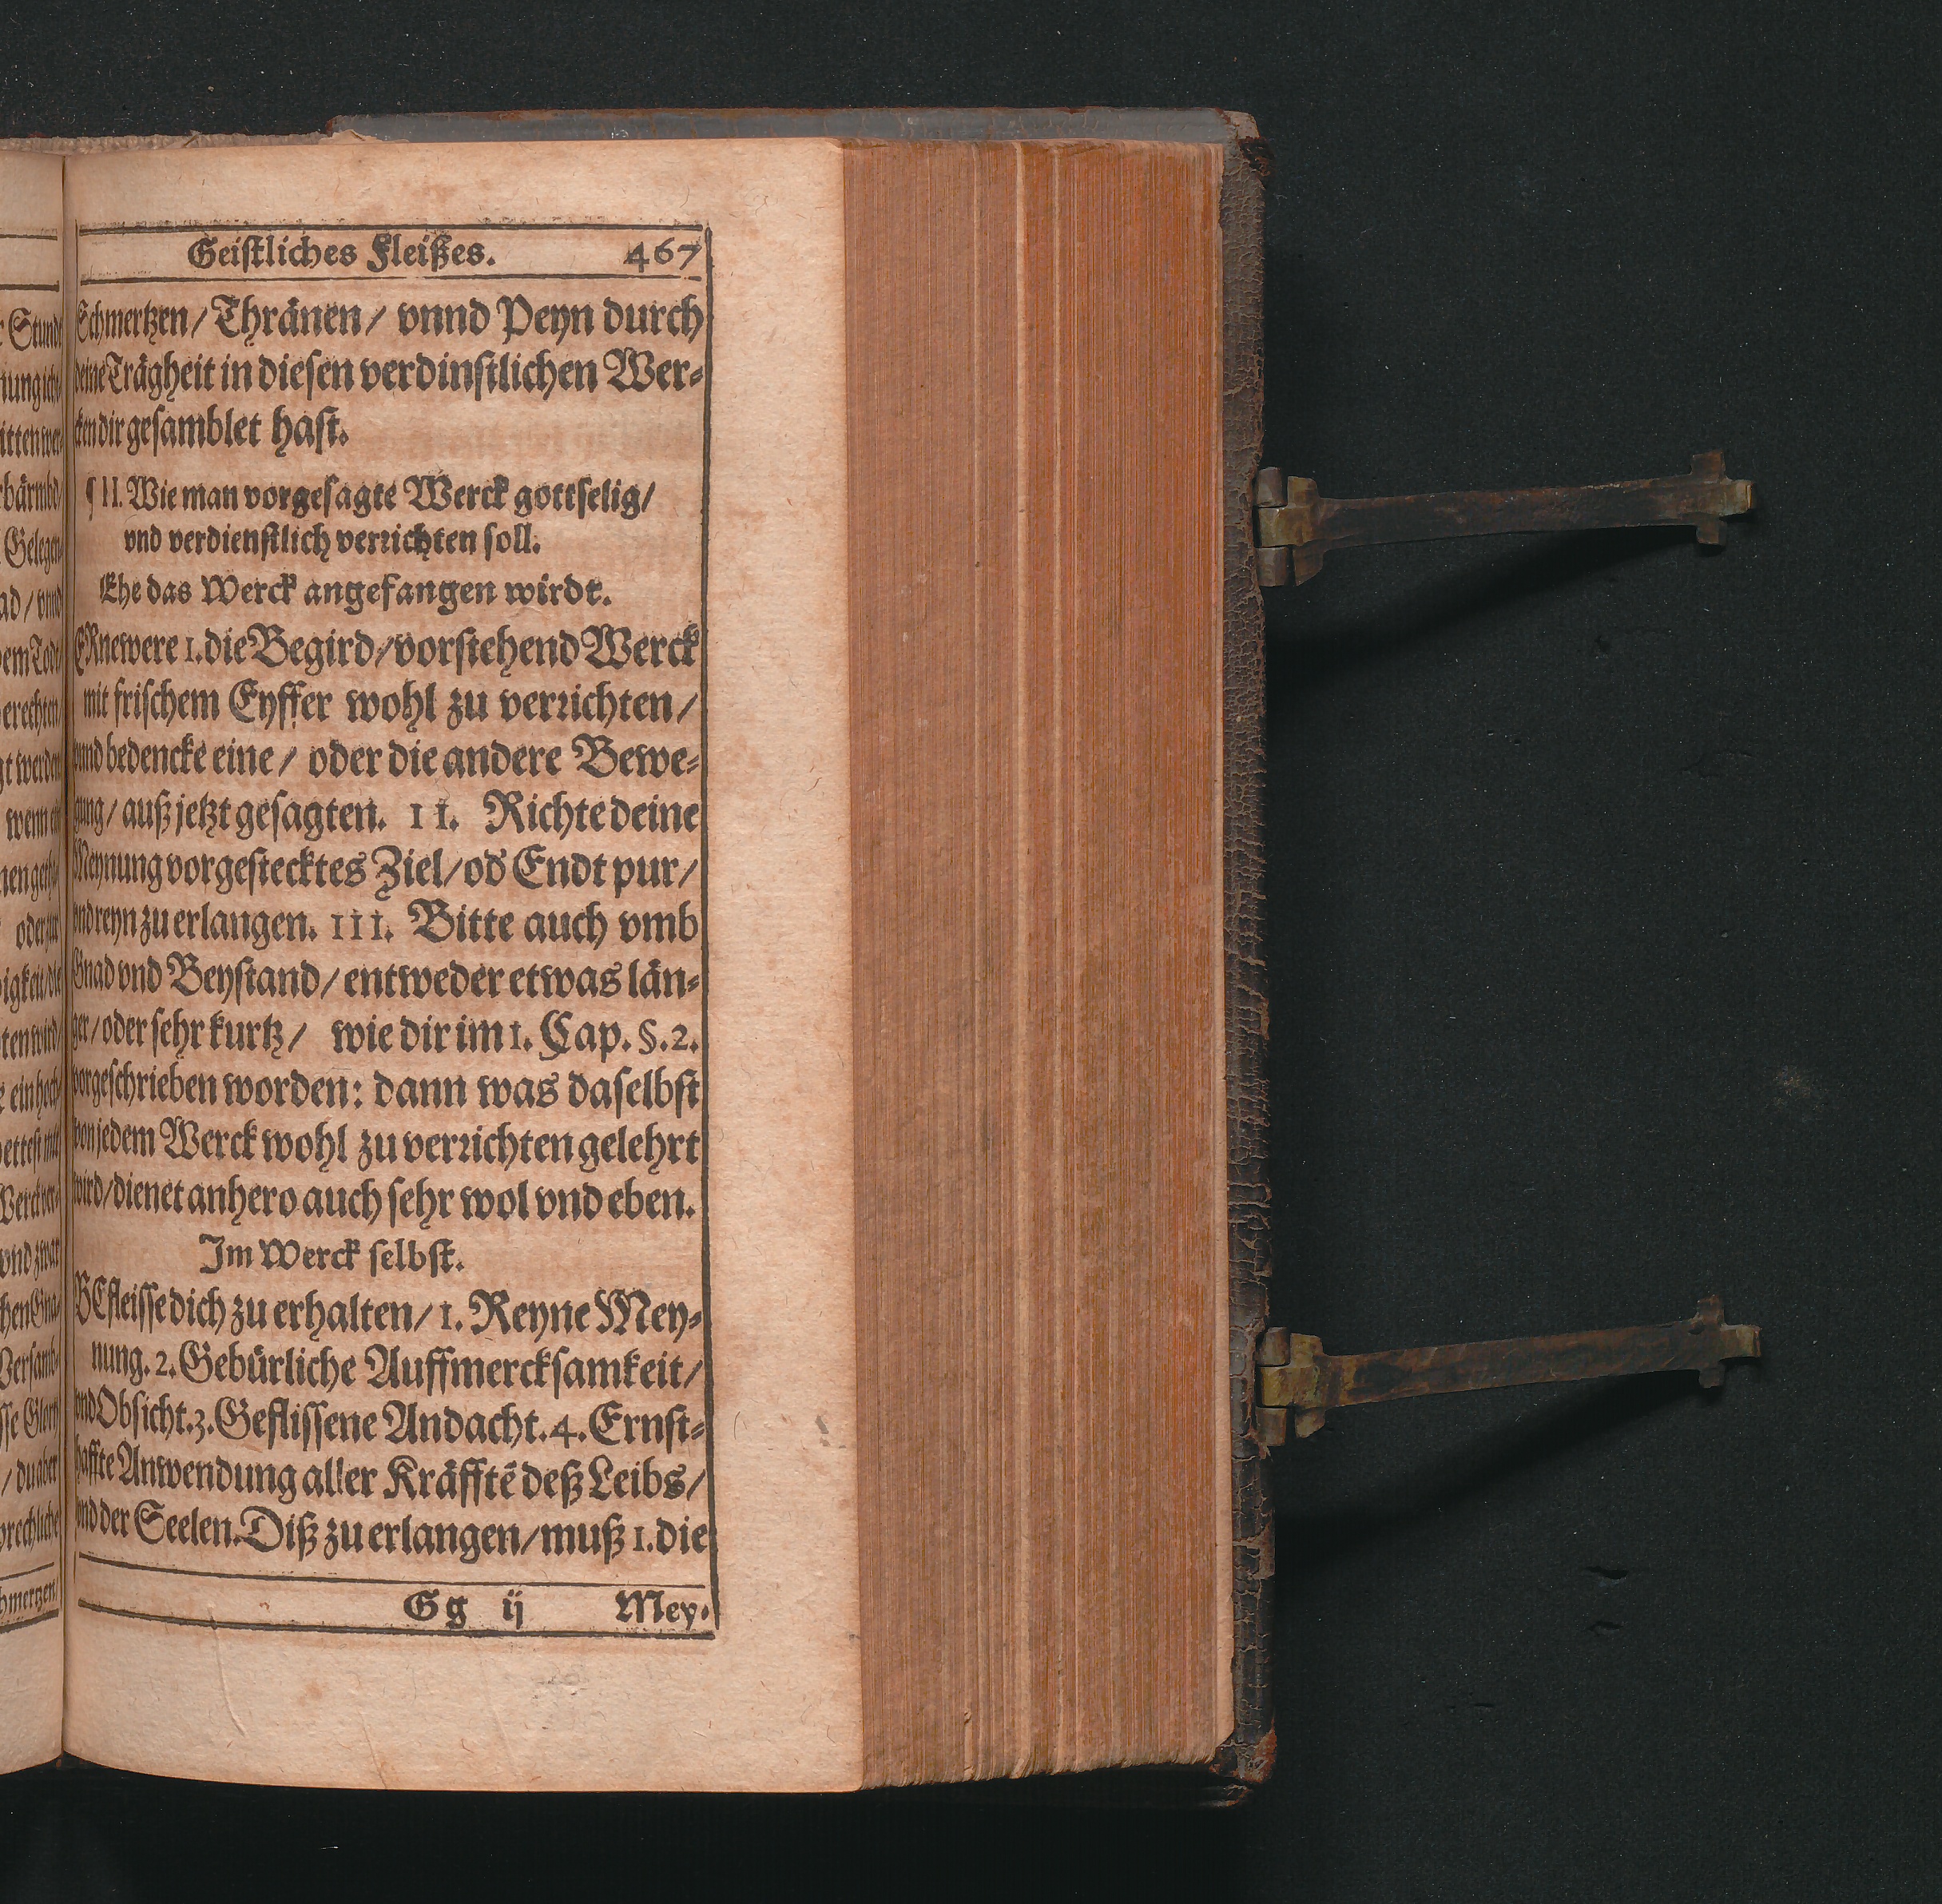 Geistliches Fleißes. 467
Schmertzen/ Thränen/ vnnd Peyn durch
deine Trägheit in diesen verdinstlichen Wer-
cken dir gesamblet hast.
¶ II. Wie man vorgesagte Werck gottselig/
vnd verdienstlich verrichten soll.
Ehe das Werck angefangen wirdt.
ERnewere 1. die Begird/ vorstehend Werck
mit frischem Eyffer wohl zu verrichten/
vnnd bedencke eine/ oder die andere Bewe-
gung/ auß jetzt gesagten. II. Richte deine
Meynung vorgestecktes Ziel/ od' Endt pur/
vnd reyn zu erlangen. III. Bitte auch vmb
Gnad vnd Beystand/ entweder etwas län-
ger/ oder sehr kurtz/ wie dir im 1. Cap. §. 2.
vorgeschrieben worden: dann was daselbst
von jedem Werck wohl zu verrichten gelehrt
wird/ dienet anhero auch sehr wol vnd eben.
Im Werck selbst.
BEfleisse dich zu erhalten/ 1. Reyne Mey-
nung. 2. Gebürliche Auffmercksamkeit/
vnd Obsicht. 3. Geflissene Andacht. 4. Ernst-
haffte Anwendung aller Kräfftē deß Leibs/
vnd der Seelen. Diß zu erlangen/ muß 1. die
Gg ij Mey-